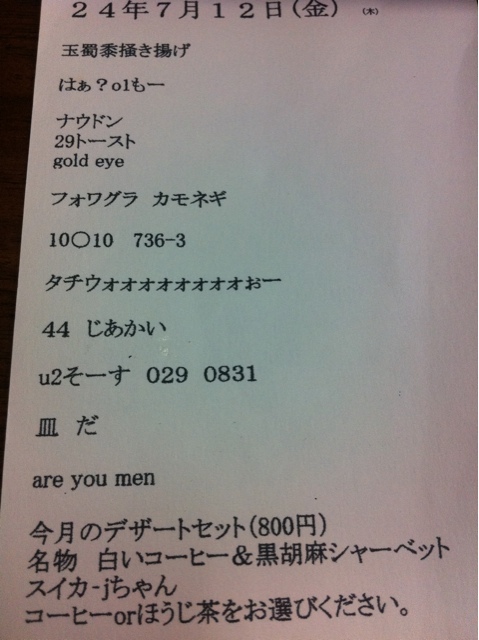 24年7月12日(金) (木)
玉蜀黍掻き揚げ
はぁ?o1もー
ナウドン
29トースト
gold eye
フォワグラ カモネギ
10○10 736-3
タチウォォォォォォォォぉー
44 じあかい
u2そーす 029 0831
皿 だ
are you men
今月のデザートセット(800円)
名物 白いコーヒー&黒胡麻シャーベット
スイカ-jちゃん
コーヒーorほうじ茶をお選びください。